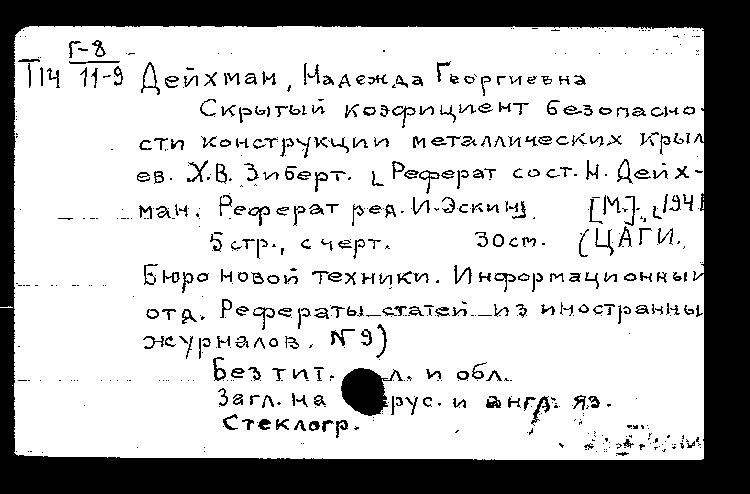 Г-8
Т14 11-9 Дейхман, Надежда Георгиевна
Скрытый коэфициент безопасно-
сти конструкции металлических крыл
ев. Х.В. Зиберт. [Реферат сост. Н. Дейх-
ман. Реферат ред. И. Эскин] [М.], [1941
5 стр., с черт. 30 см. (ЦАГИ.
Бюро новой техники. Информационный
отд. Рефераты статей из иностранны
журналов. №9)
Без тит. л. и обл.
Загл. на рус. и англ. яз.
Стеклогр.